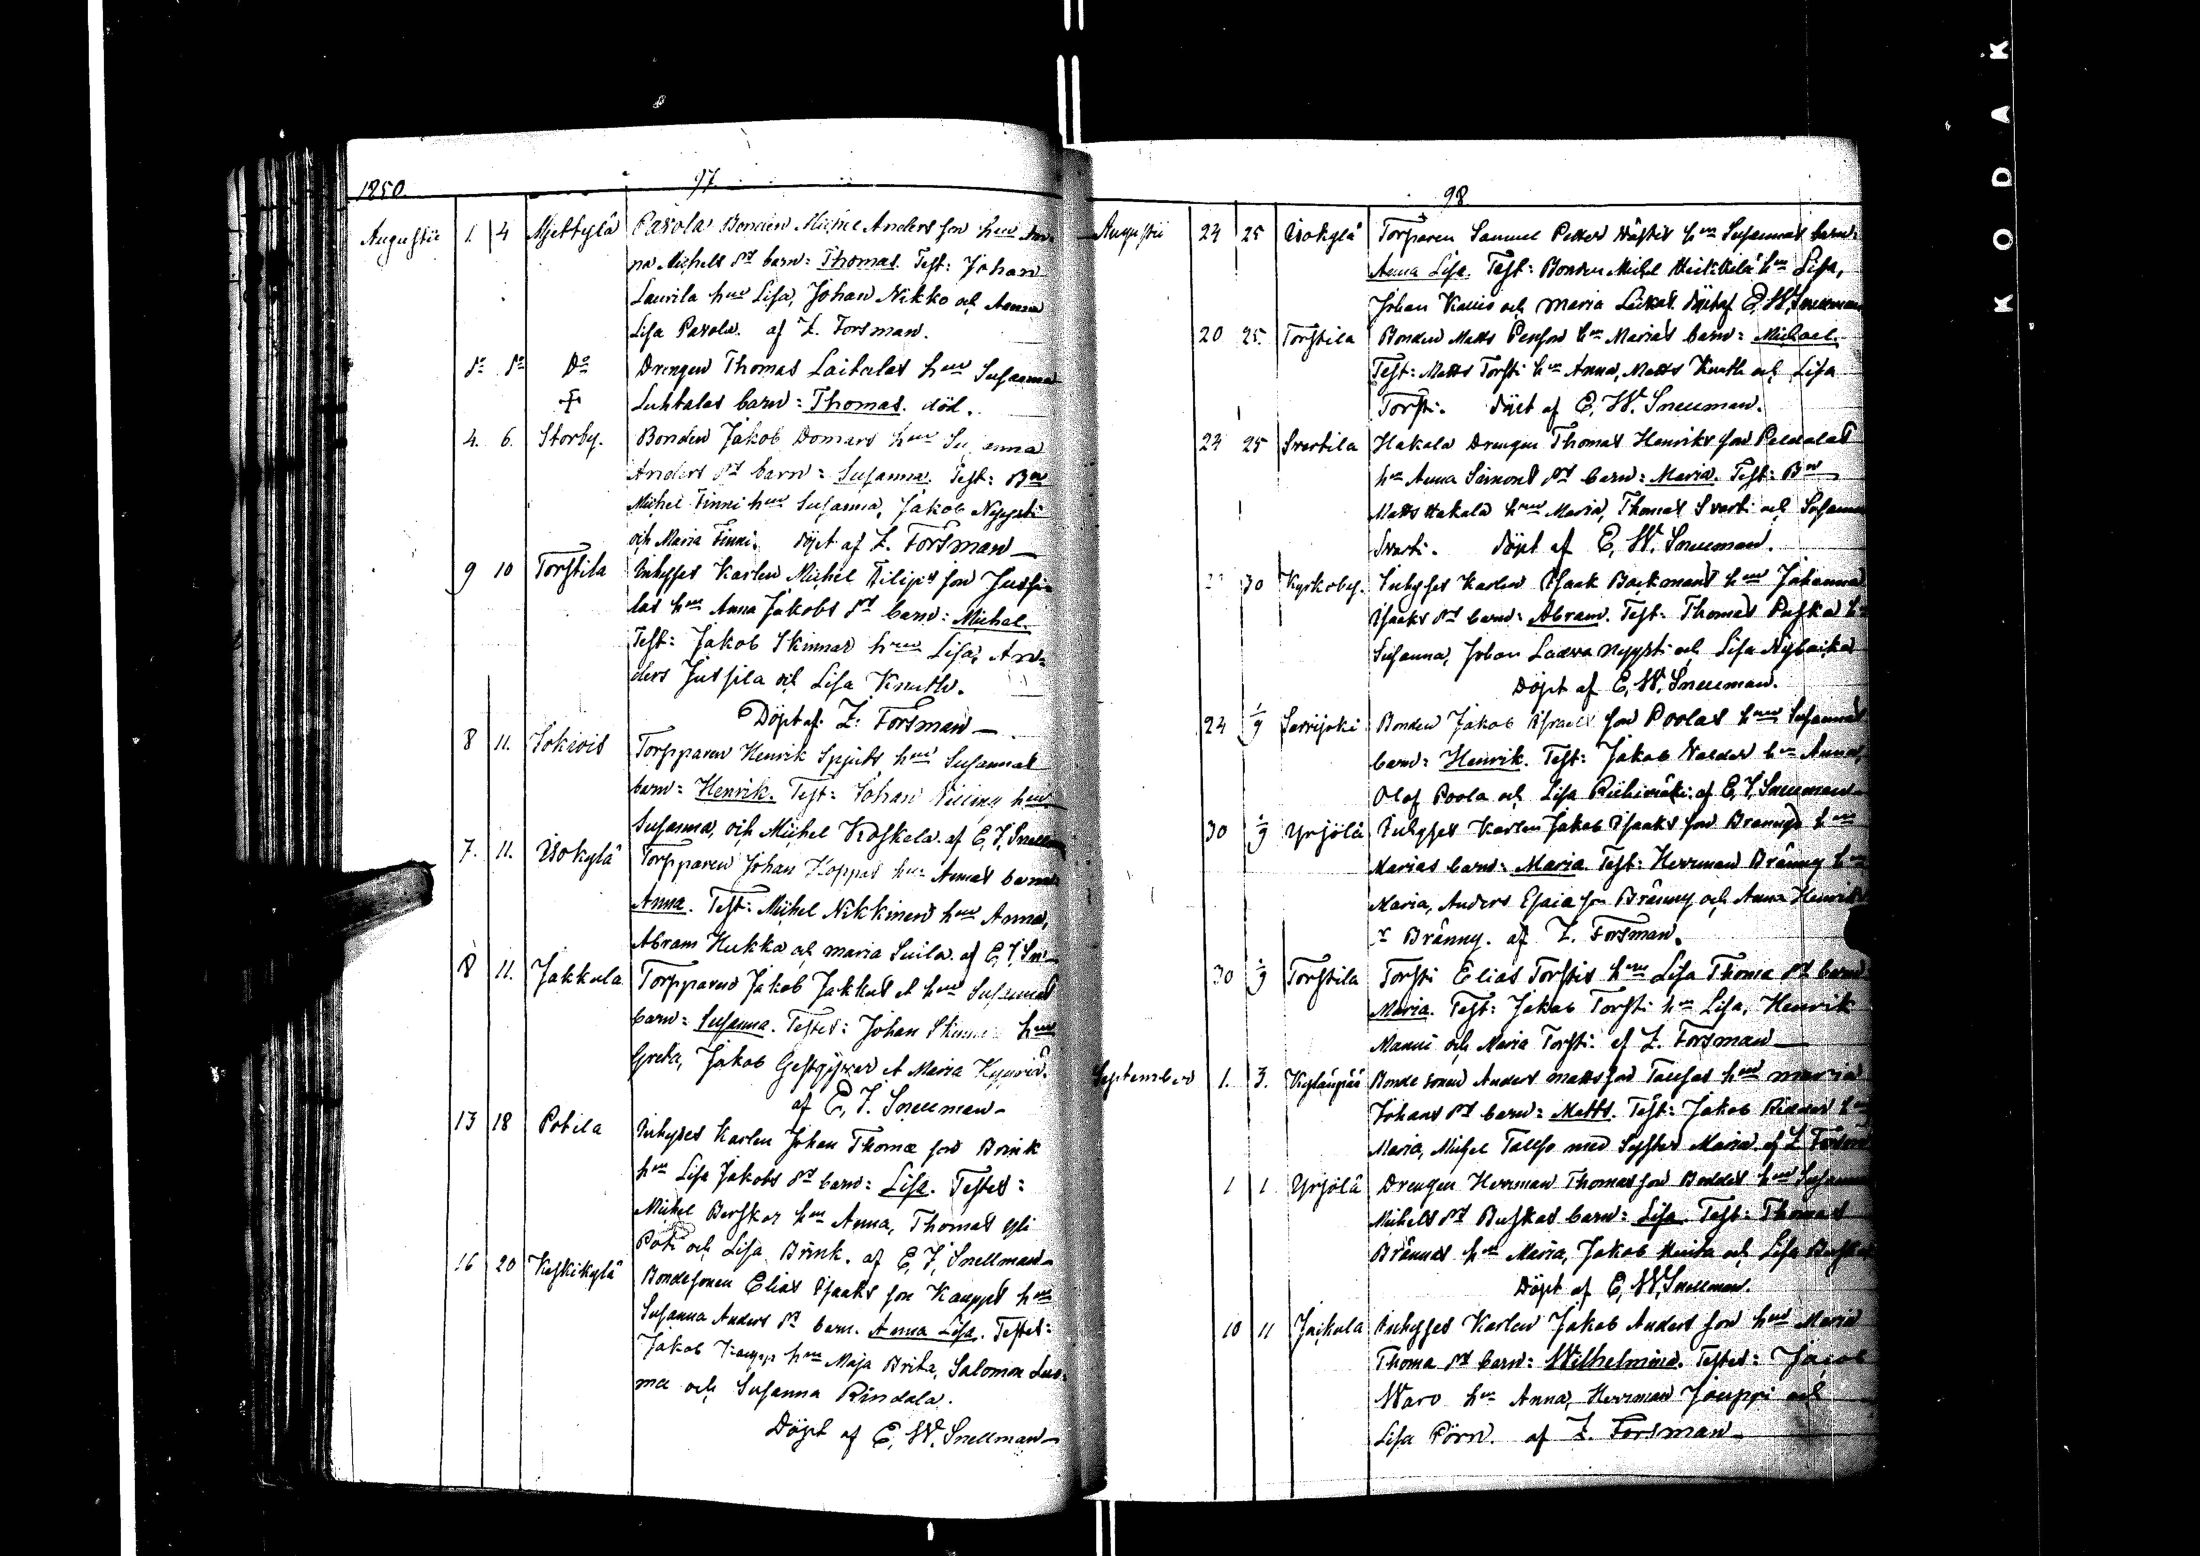 1850.
97.
Augustii 1. 4 Mjettylä Pasola Bonden Michel Andersson hnu An-
na Michels dr barn: Thomas. Test: Johan
Laurila hnu Lisa, Johan Nikko och Anna
Lisa Pasola. af Z. Forsman.
do do Do Drengen Thomas Laitalas hnu Susanna
Luhtalas barn: Thomas. död.
4. 6. Storby. Bonden Jakob Domars hnu Susanna
Anders dr barn: Susanna. Test: Bn
Michel Finni hnu Susanna, Jakob Nyysti
och Maria Finni. döpt af Z. Forsman
9 10 Torstila Inhyses Karlen Michel Filips son Jussi-
las hnu Anna Jakobs dr barn: Michel.
Test: Jakob Skinnar hnu Lisa, An-
ders Jussila och Lisa Knuth.
Döpt af Z. Forsman
8 11. Sokiois Torpparen Henrik Spjuts hnu Susannas
barn: Henrik. Test: Johan hnu
Susanna, och Michel Koskela. af E. J. Snellm
7. 11. Isokylä Torpparen Johan Koppas hnu Annas barn
Anna. Test: Michel Nikkinen hnu Anna,
Abram Hukka och maria Suila. af E. J. Sn
8 11. Jakkula Torpparen Jakob hnu Susannas
barn: Susanna. Testes: Johan hnu
Greta, Jakob Gestgifvar et Maria
af E. J. Snellman
13 18 Potila Inhyses Karlen Johan Thomæ son Brink
hnu Lisa Jakobs dr barn: Lisa. Testes:
Michel hnu Anna, Thomas Yli
Poti och Lisa Brink. af E. J. Snellman
16 20 Keskikylä Bondesonen Elias Isaaks son Kaupps hnu
Susanna Anders dr barn. Anna Lisa. Testes:
Jakob Kaupp hnu Maja Brita, Salomon Luo-
ma och Susanna Rindala.
Döpt af E. W. Snellman
98
Augustii 24 25 Isokylä Torparen Samuel Petter hnu Susannas barn:
Anna Lisa. Test: Bonden Michel Heikkilä hnu Lisa,
Johan och Maria döpt af E. W. Snellman
20 25. Torstila Bonden Matts hnu Marias barn: Michael.
Test: Matts Torsti hnu Anna, Matts Knuth och Lisa
Torsti. döpt af E. W. Snellman.
24 25 Svertila Hakala Drengen Thomas Henriks son
hnu Anna Simons dr barn: Maria. Test: Bn
Matts Hakala hnu Maria, Thomas Svarti och Susanna
Svarti. döpt af E. W. Snellman.
30 Kyrkoby. Inhyses Karlen Isaak Backmans hnu Johanna
Isaaks dr barn: Abram. Test: Thomas Puska hnu
Susanna, Johan Nyysti och Lisa
Döpt af E. W. Snellman.
24 1/9 Savijoki Bonden Jakob Israels son Poolas hnu Susannas
barn: Henrik. Test: Jakob hnu Anna,
Olof Poola och Lisa Riihimäki. af E. J. Snellman
30 1/9 Yrjölä Inhyses Karlen Jakob Isaaks son Brännys hnu
Marias barn: Maria. Test: Herrman Bränny hnu
Maria, Anders Esaia son Bränny och Anna Henriks
dr Bränny. af Z. Forsman.
30 1/9 Torstila Torsti Elias Torstis hnu Lisa Thoma dr barn
Maria. Test: Jakob Torsti hnu Lisa, Henrik
Manni och Maria Torsti. af Z. Forsman
September 1. 3. Kyläupää Bonde sonen Anders Matts son Talsos hnu Maria
Johans dr barn: Matts. Test: Jakob hnu
Maria, Michel med Syster Maria. af Z. Forsm
1 1 Yrjölä Drengen Herrman Thomas son Beddes hnu Susanna
Michels dr Buskas barn: Lisa. Test: Thomas
Brännas hnu Maria, Jakob och Lisa
Döpt af E. W. Snellman.
10 11 Jäikula Inhyses Karlen Jakob Anders son hnu Maria
Thoma dr barn: Wilhelmina. Testes: Jacob
Waro hnu Anna, Herrman Jauppi och
Lisa Pörn. af Z. Forsman
KODAK